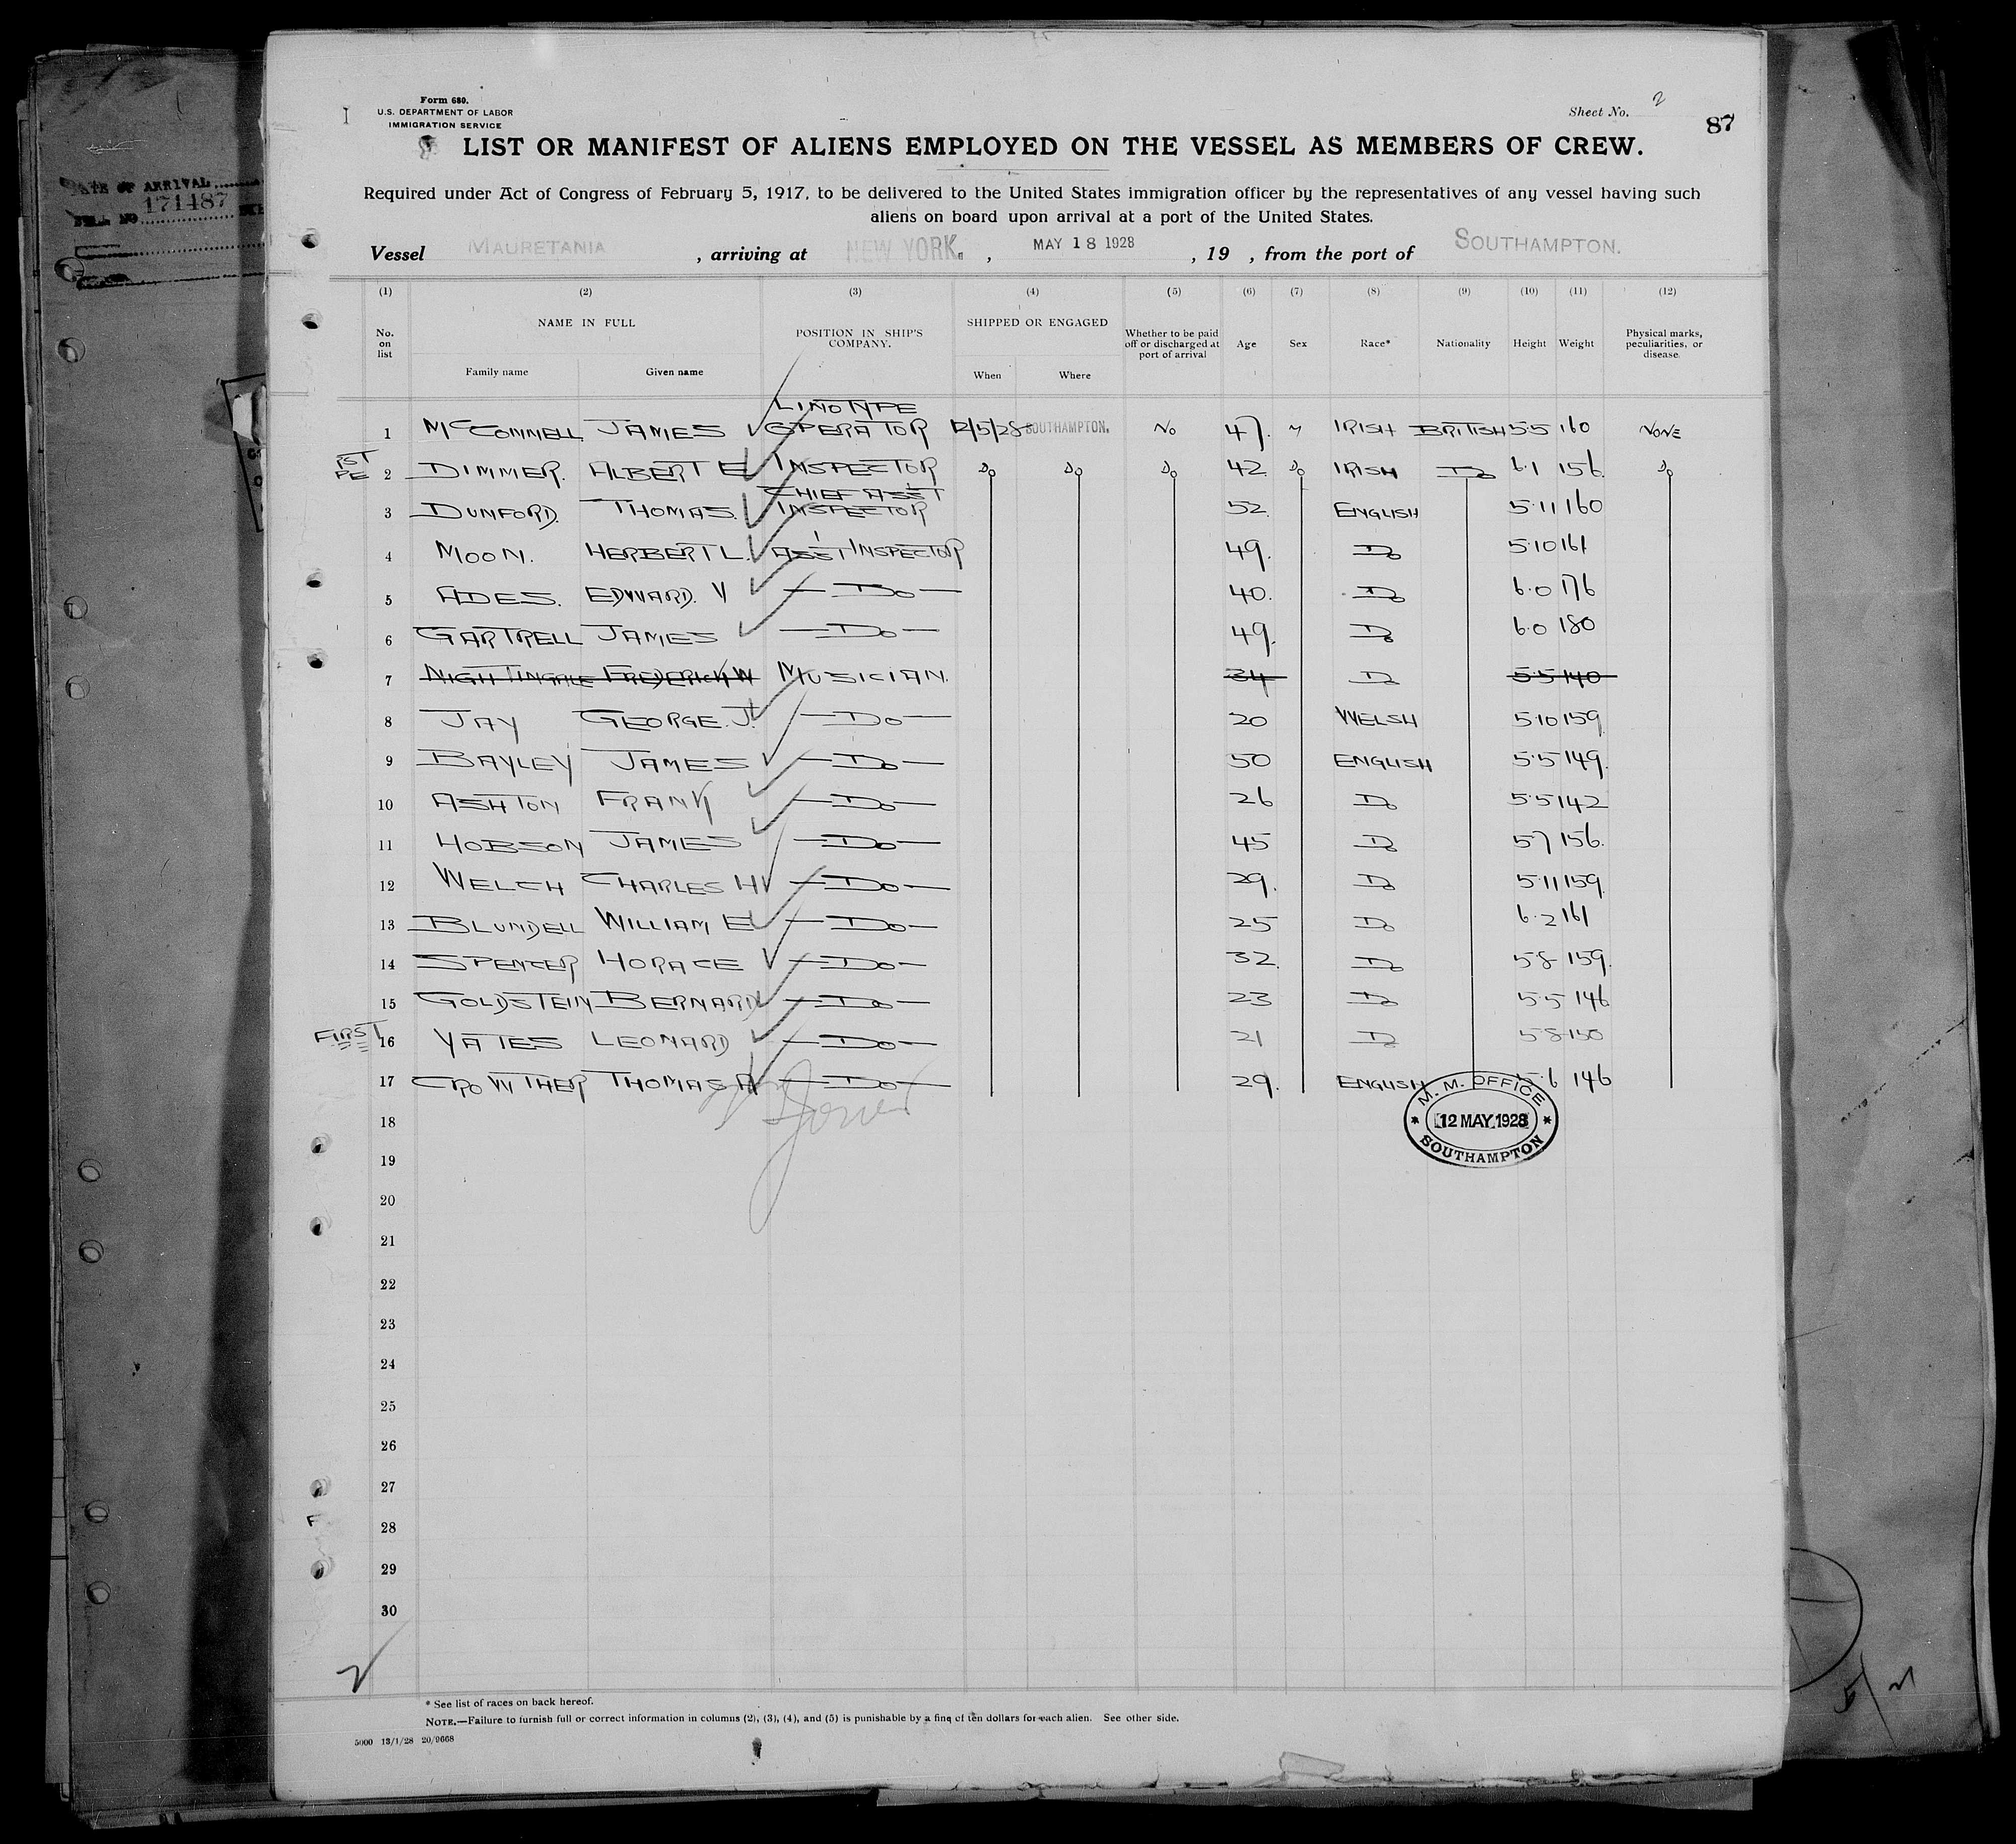 Form 680.
U.S. DEPARTMENT OF LABOR
IMMIGRATION SERVICE
Sheet No. 2
87
LIST OR MANIFEST OF ALIENS EMPLOYED ON THE VESSEL AS MEMBERS OF CREW.
Required under Act of Congress of February 5, 1917, to be delivered to the United States immigration officer by the representatives of any vessel having such
aliens on board upon arrival at a port of the United States.
Vessel MAURETANIA , arriving at NEW YORK. , MAY 18 1928 , 19 , from the port of SOUTHAMPTON.
(1) (2) (3) (4) (5) (6) (7) (8) (9) (10) (11) (12)
No. on list NAME IN FULL POSITION IN SHIP'S COMPANY. SHIPPED OR ENGAGED Whether to be paid off or discharged at port of arrival Age Sex Race* Nationality Height Weight Physical marks, peculiarities, or disease.
Family name Given name When Where
1 McCONNELL JAMES LINOTYPE OPERATOR 12/5/28 SOUTHAMPTON. No 47. M IRISH BRITISH 5.5 160 NONE
1ST PE 2 DIMMER. ALBERT E INSPECTOR Do Do Do 42 Do IRISH Do 6.1 156 Do
3 DUNFORD. THOMAS. CHIEF ASST INSPECTOR 52. ENGLISH 5.11 160
4 MOON. HERBERT L. ASST INSPECTOR 49. Do 5.10 161
5 ADES. EDWARD. V — Do — 40. Do 6.0 176
6 GARTRELL JAMES — Do — 49. Do 6.0 180
7 NIGHTINGALE FREDERICK W MUSICIAN. 34 Do 5.5 140
8 JAY GEORGE. J. — Do — 20 WELSH 5.10 159
9 BAYLEY JAMES — Do — 50 ENGLISH 5.5 149.
10 ASHTON FRANK — Do — 26 Do 5.5 142
11 HOBSON JAMES — Do — 45 Do 5.7 156.
12 WELCH CHARLES H — Do — 29. Do 5.11 159
13 BLUNDELL WILLIAM E — Do — 25 Do 6.2 161
14 SPENCER HORACE — Do — 32. Do 5.8 159.
15 GOLDSTEIN BERNARD — Do — 23 Do 5.5 146
FIRST 16 YATES LEONARD — Do — 21 Do 5.8 150
17 CROWTHER THOMAS A — Do — 29. ENGLISH 5.6 146
M. M. OFFICE
12 MAY 1928
SOUTHAMPTON
18
19
20
21
22
23
24
25
26
27
28
29
30
* See list of races on back hereof.
NOTE.—Failure to furnish full or correct information in columns (2), (3), (4), and (5) is punishable by a fine of ten dollars for each alien. See other side.
5000 13/1/28 20/9668
DATE OF ARRIVAL
171487